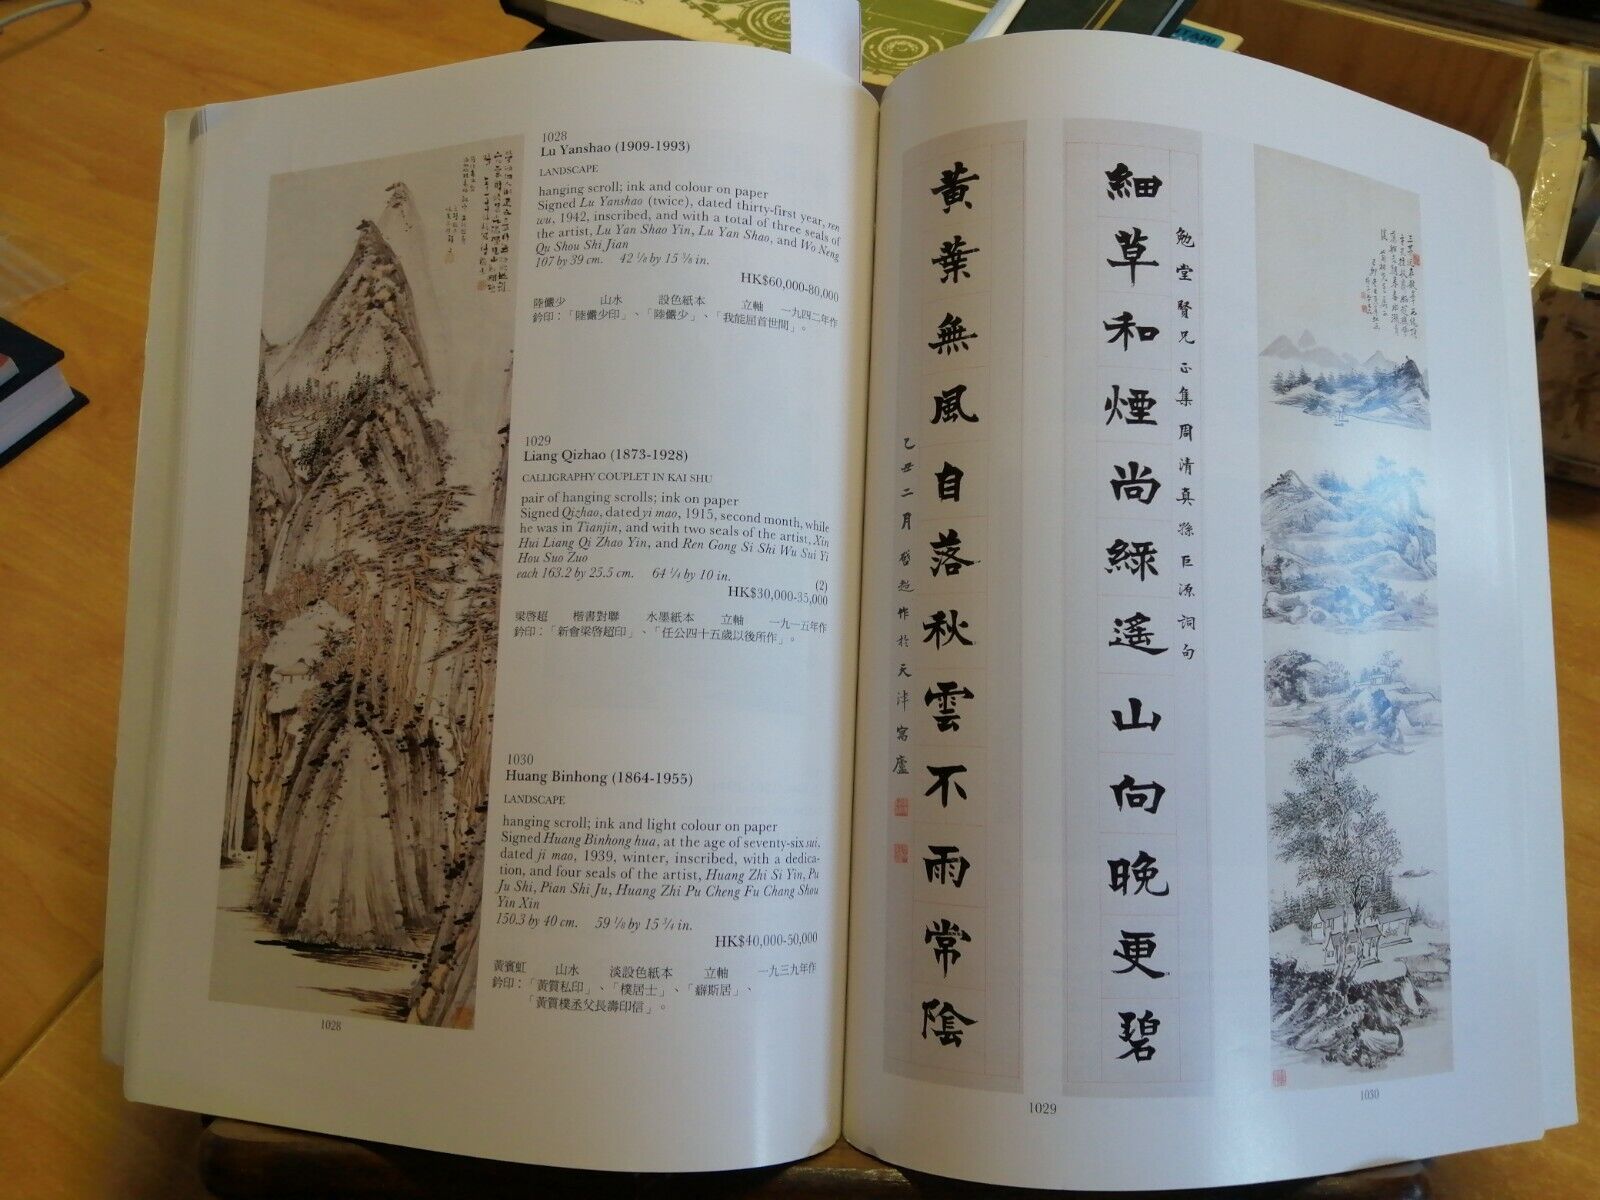 1028
Lu Yanshao (1909-1993)
LANDSCAPE
hanging scroll; ink and colour on paper
Signed Lu Yanshao (twice), dated thirty-first year, ren
wu, 1942, inscribed, and with a total of three seals of
the artist, Lu Yan Shao Yin, Lu Yan Shao, and Wo Neng
Qu Shou Shi Jian
107 by 39 cm. 42 1/8 by 15 3/8 in.
HK$60,000-80,000
陸儼少 山水 設色紙本 立軸 一九四二年作
鈐印：「陸儼少印」、「陸儼少」、「我能屈首世間」。
1029
Liang Qizhao (1873-1928)
CALLIGRAPHY COUPLET IN KAI SHU
pair of hanging scrolls; ink on paper
Signed Qizhao, dated yi mao, 1915, second month, while
he was in Tianjin, and with two seals of the artist, Xin
Hui Liang Qi Zhao Yin, and Ren Gong Si Shi Wu Sui Yi
Hou Suo Zuo
each 163.2 by 25.5 cm. 64 1/4 by 10 in. (2)
HK$30,000-35,000
梁啓超 楷書對聯 水墨紙本 立軸 一九一五年作
鈐印：「新會梁啓超印」、「任公四十五歲以後所作」。
1030
Huang Binhong (1864-1955)
LANDSCAPE
hanging scroll; ink and light colour on paper
Signed Huang Binhong hua, at the age of seventy-six sui,
dated ji mao, 1939, winter, inscribed, with a dedica-
tion, and four seals of the artist, Huang Zhi Si Yin, Pu
Ju Shi, Pian Shi Ju, Huang Zhi Pu Cheng Fu Chang Shou
Yin Xin
150.3 by 40 cm. 59 1/8 by 15 3/4 in.
HK$40,000-50,000
黃賓虹 山水 淡設色紙本 立軸 一九三九年作
鈐印：「黃質私印」、「樸居士」、「癖斯居」、
「黃質樸丞父長壽印信」。
1028
勉堂賢兄正集周清真孫巨源詞句
細草和煙尚綠遙山向晚更碧
黃葉無風自落秋雲不雨常陰
乙丑二月啓超作於天津寓廬
1029
1030